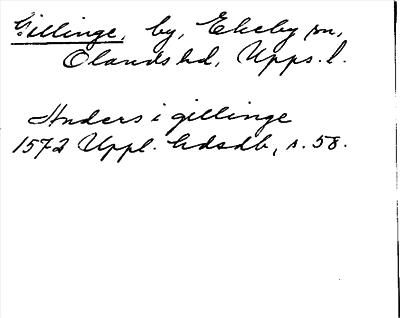 Gillinge, by, Ekeby sn,
Olands hd, Upps. l.
Anders i gillinge
1572 Uppl. hdsdb, s. 58.